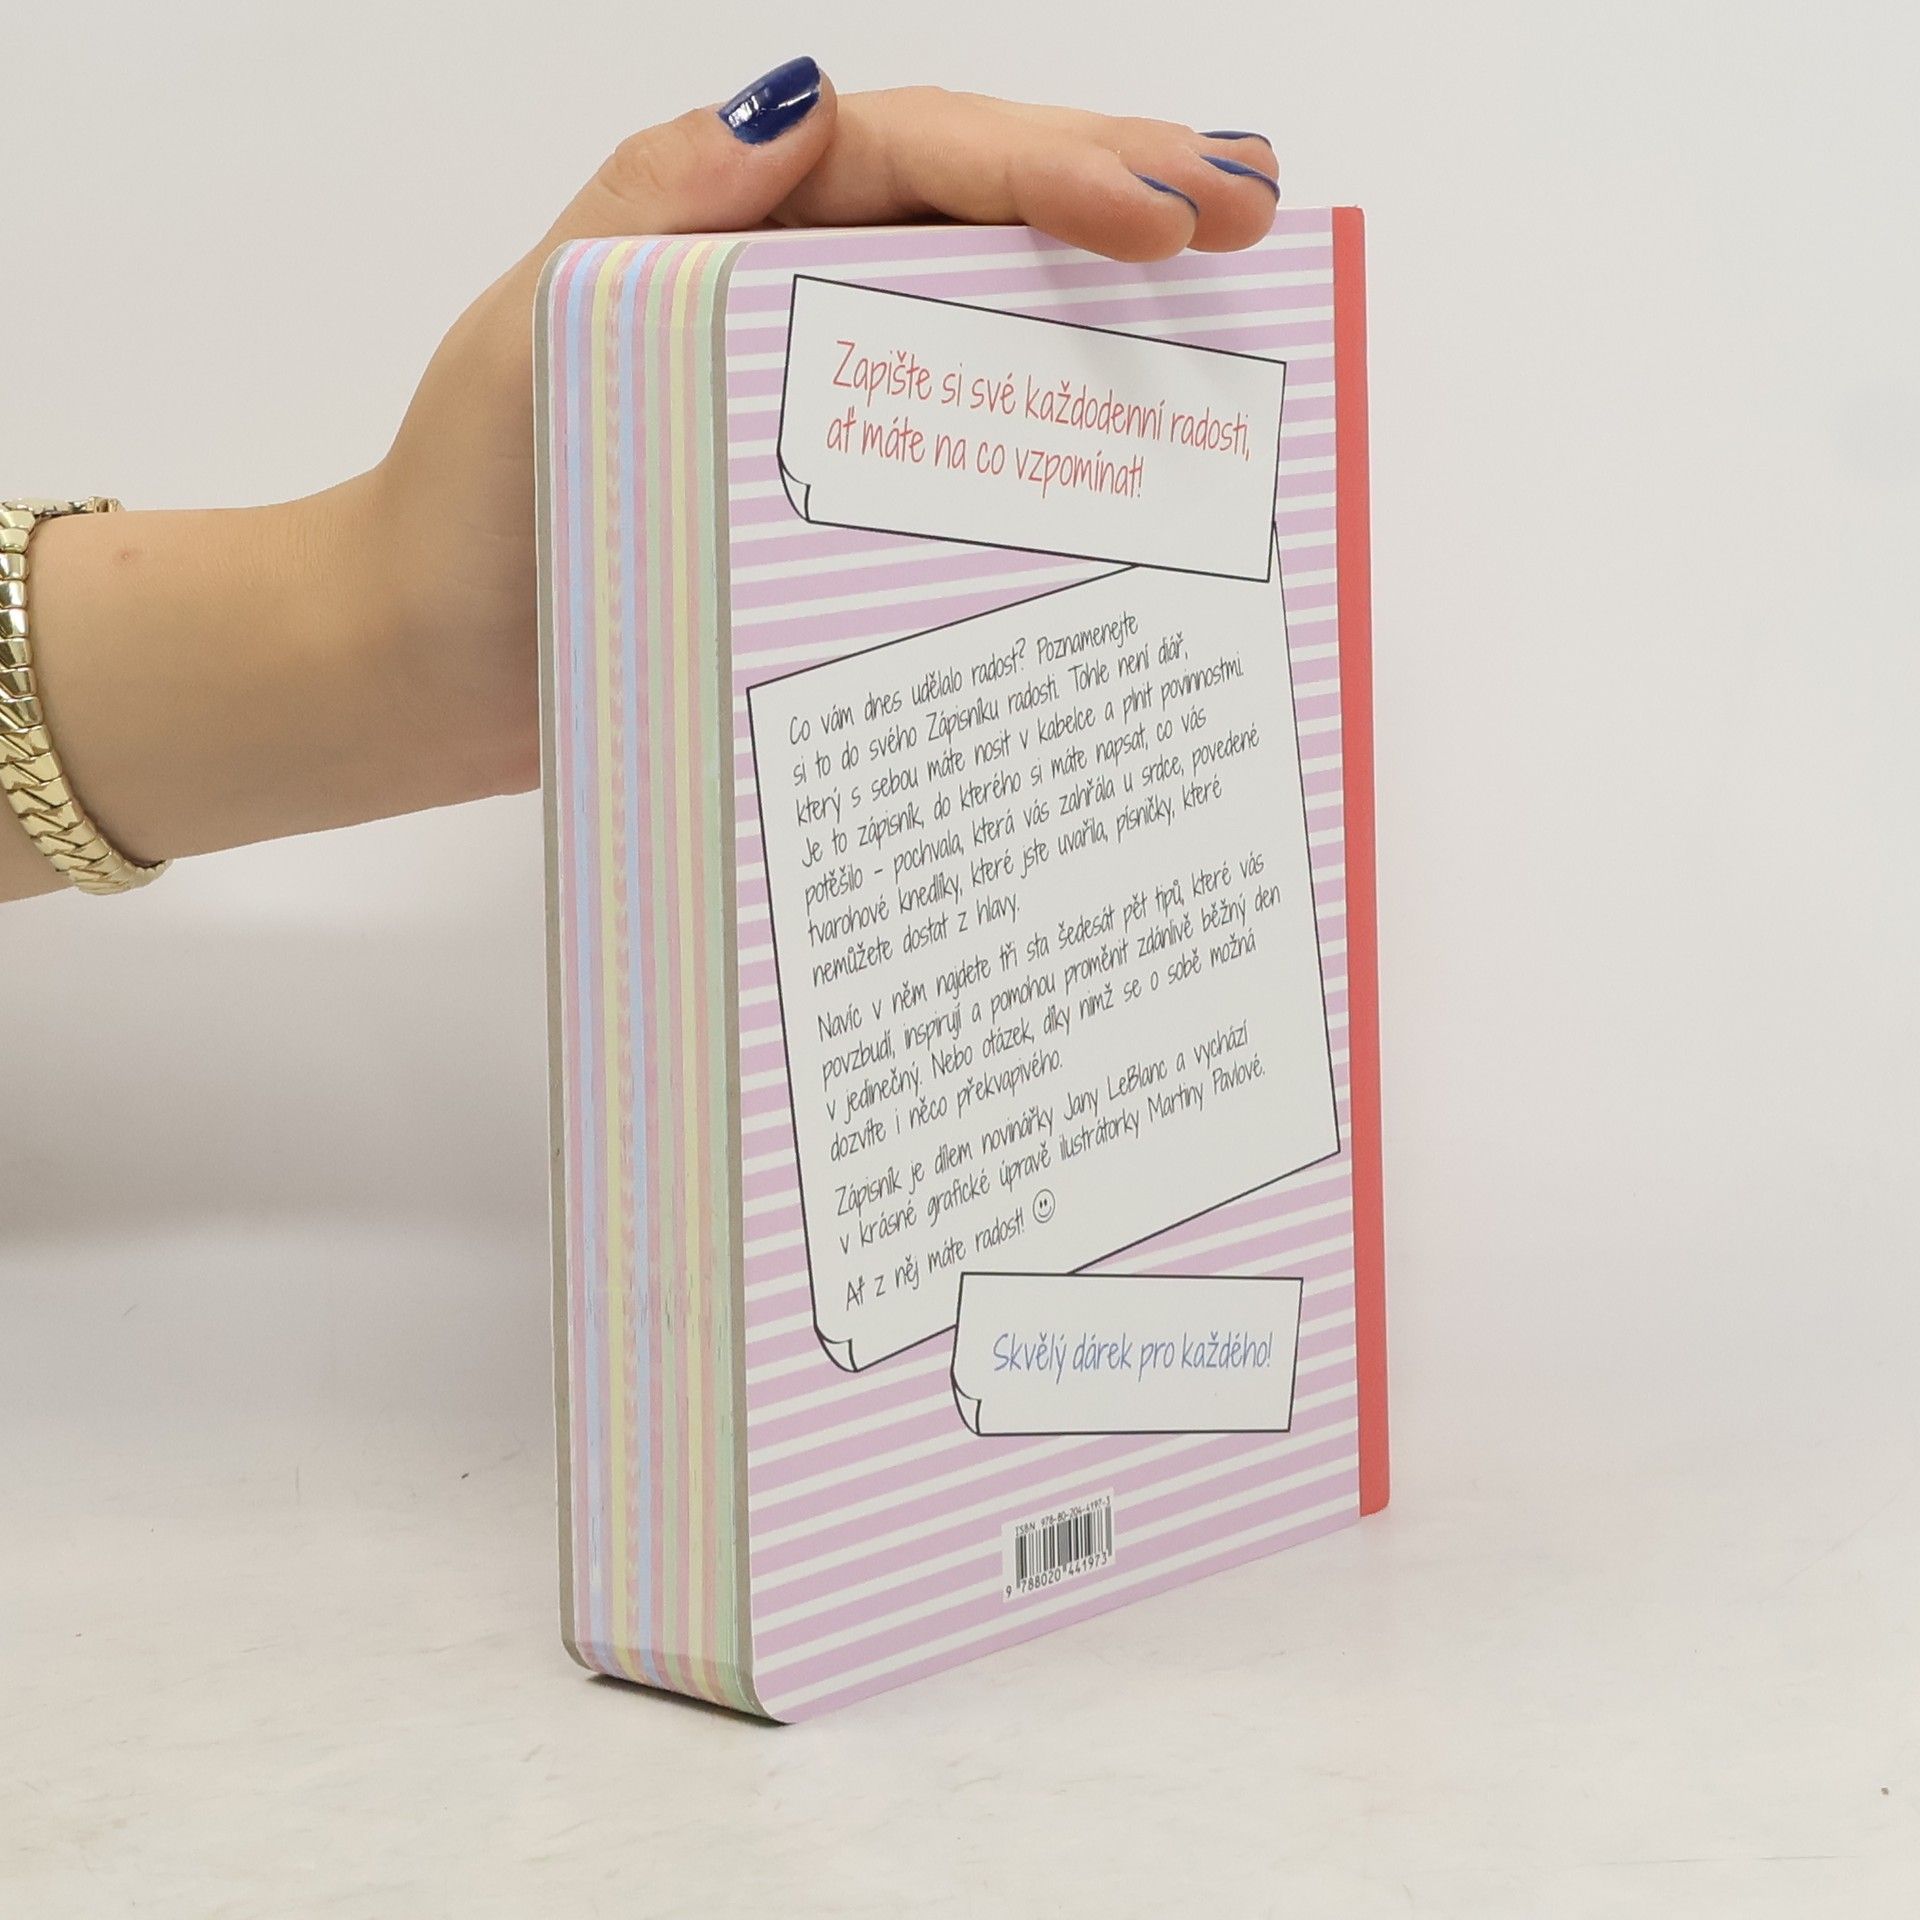 Zapište si své každodenní radosti,
ať máte na co vzpomínat!
Co vám dnes udělalo radost? Poznamenejte
si to do svého Zápisníku radosti. Tohle není diář,
který s sebou máte nosit v kabelce a plnit povinnostmi.
Je to zápisník, do kterého si máte napsat, co vás
potěšilo – pochvala, která vás zahřála u srdce, povedené
tvarohové knedlíky, které jste uvařila, písničky, které
nemůžete dostat z hlavy.
Navíc v něm najdete tři sta šedesát pět tipů, které vás
povzbudí, inspirují a pomohou proměnit zdánlivě běžný den
v jedinečný. Nebo otázek, díky nimž se o sobě možná
dozvíte i něco překvapivého.
Zápisník je dílem novinářky Jany LeBlanc a vychází
v krásné grafické úpravě ilustrátorky Martiny Pavlové.
Ať z něj máte radost! ☺
Skvělý dárek pro každého!
ISBN 978-80-204-4197-3
9 788020 441973